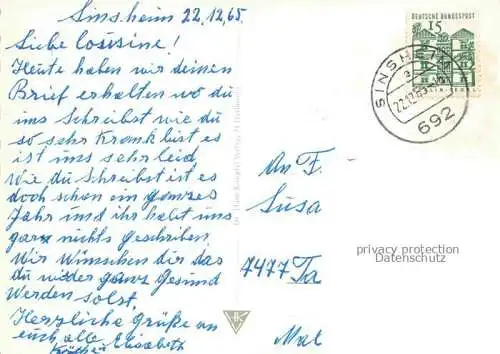 Sinsheim 22.12.65
Liebe Cousine!
Heute haben wir deinen
Brief erhalten wo du
uns Schreibst wie du
so sehr Krank bist es
ist uns sehr leid,
Wie du Schreibst ist es
doch schon ein ganzes
Jahr und ihr habt uns
garnichts geschrieben.
Wir Wünschen dir das
du wieder ganz Gesund
Werden solst.
Herzliche Grüße an
euch alle Elisabeth
An F.
Susa
7477 Ta
Mat
DEUTSCHE BUNDESPOST
15
SINSHEIM
22.12.65
692
privacy protection
Datenschutz